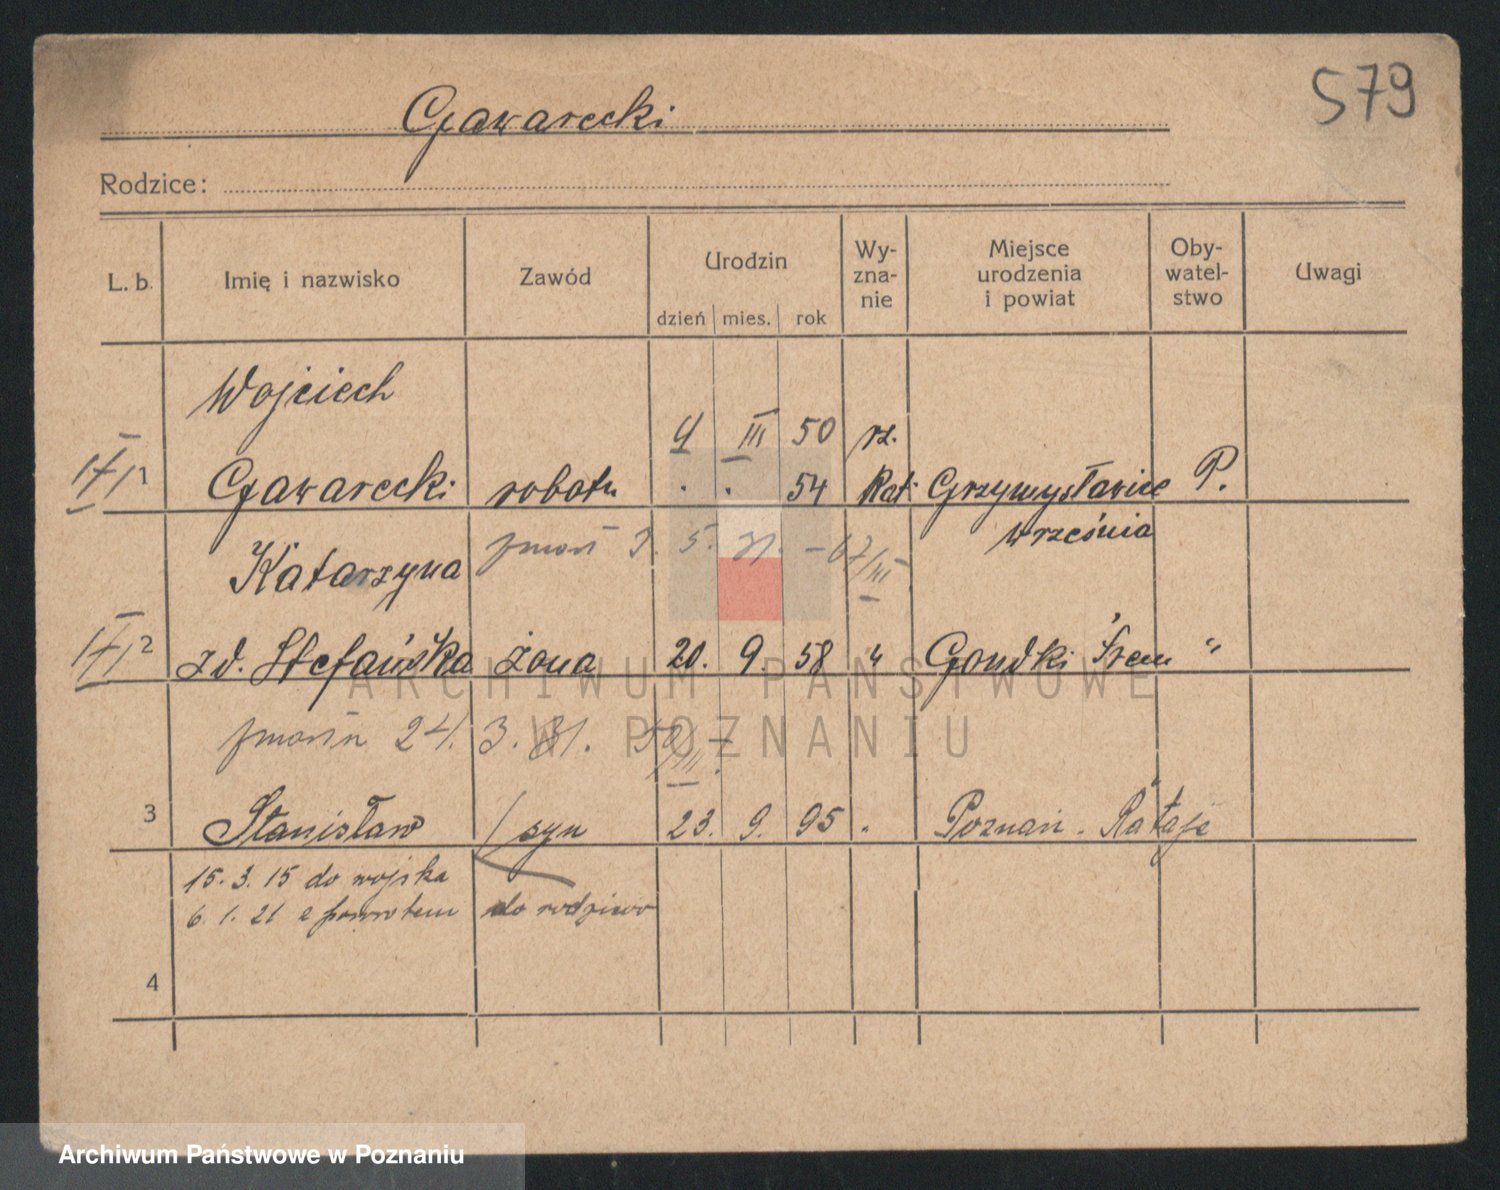 579
Czawarecki
Rodzice:
L. b. Imię i nazwisko Zawód Urodzin dzień mies. rok Wy-zna-nie Miejsce urodzenia i powiat Oby-watel-stwo Uwagi
Wojciech
4 III 50 rz.
1 Czawarecki robotn . . 54 Kat. Grzymysławice P.
września
Katarzyna
2 zd. Stefańska żona 20. 9. 58 " Gondki Śrem "
24. 3. 31.
3 Stanisław syn 23. 9. 95 " Poznań - Rataje
15. 3. 15 do wojska
6. 1. 21 z powrotem do rodziców
4
ARCHIWUM PAŃSTWOWE
W POZNANIU
Archiwum Państwowe w Poznaniu